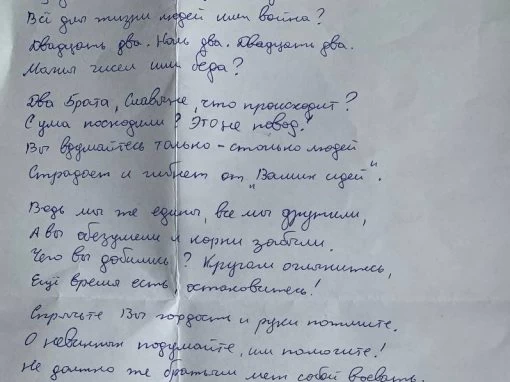 Всё для жизни людей или война?
Двадцать два. Ноль два. Двадцать два.
Магия чисел или беда?
Два брата, Славяне, что происходит?
С ума посходили? Это не повод!
Вы вдумайтесь только - столько людей
Страдает и гибнет от "Ваших идей".
Ведь мы же едины, все мы дружили,
А вы обезумели и корни забыли.
Чего вы добились? Кругом оглянитесь,
Ещё время есть, остановитесь!
Спрячьте Вы гордость и руки пожмите.
О невинных подумайте, им помогите!
Не должно же братьям меж собой воевать.